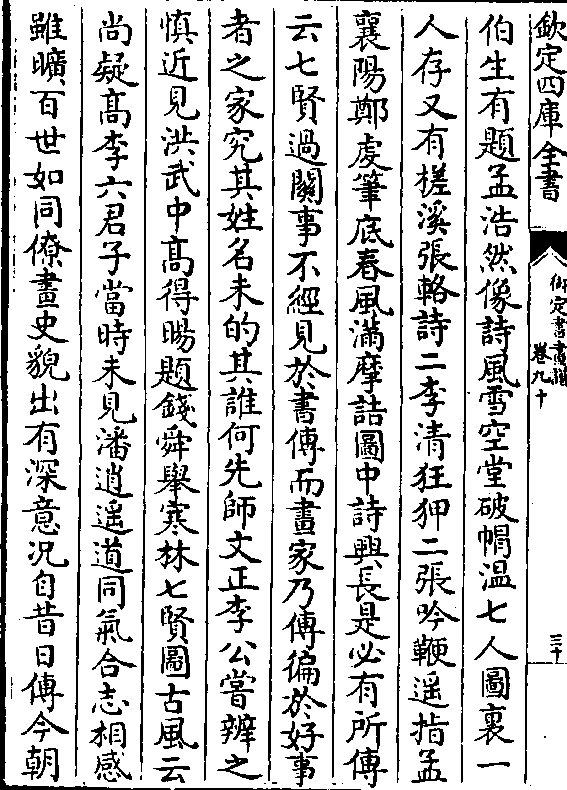 欽定四庫全書
御定書畫譜
卷九十
三十
伯生有題孟浩然像詩風雪空堂破㡌温七人圖裏一
人存又有槎溪張輅詩二李清狂狎二張吟鞭遥指孟
襄陽鄭䖍筆底春風滿摩詰圖中詩興長是必有所傳
云七賢過關事不經見於書傳而畫家乃傳徧於好事
者之家究其姓名未的其誰何先師文正李公嘗辨之
慎近見洪武中髙得暘題錢舜舉寒林七賢圖古風云
尚疑髙李六君子當時未見潘逍遥道同氣合志相感
雖曠百世如同僚畫史貌出有深意况自昔日傳今朝